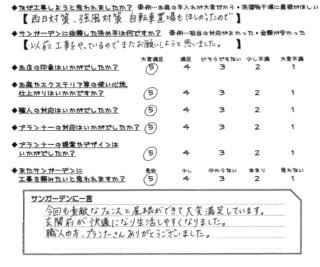 ◆なぜ工事しようと思われましたか？ 条例…お庭の手入れが大変だから・洗濯物干場に屋根がほしい
【西日対策、強風対策、自転車置場もほしかったので】
◆サンガーデンに依頼した決め手は何ですか？ 条例…担当の対応がよかった・金額が安かった
【以前工事をやっているのでまたお願いしようと思いました。】
大変満足 満足 どちらでもない 少し不満 大変不満
◆お店の印象はいかがでしたか？ 5 4 3 2 1
◆お庭やエクステリア等の使い心地、
仕上がりはいかがですか？ 5 4 3 2 1
◆職人の対応はいかがでしたか？ 5 4 3 2 1
◆プランナーの対応はいかがでしたか？ 5 4 3 2 1
◆プランナーの提案やデザインは
いかがでしたか？ 5 4 3 2 1
◆またサンガーデンに
工事を頼みたいと思われますか？ 5 4 3 2 1
少し 分からない あまり 思わない
サンガーデンに一言
今回も素敵なフェンスと屋根ができて大変満足しています。
玄関前が快適になり生活しやすくなりました。
職人の方、プランナーさんありがとうございました。